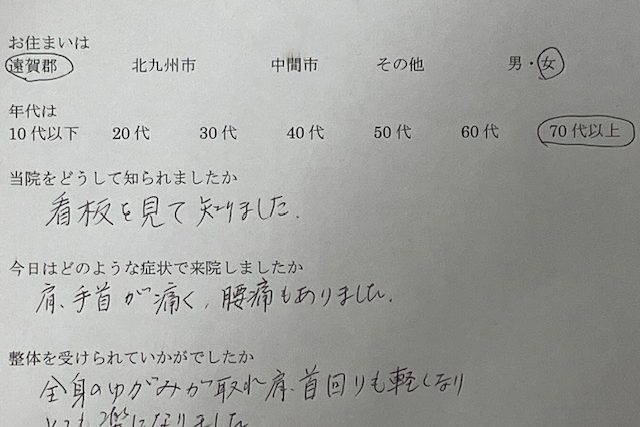 お住まいは
遠賀郡 北九州市 中間市 その他 男・女
年代は
10代以下 20代 30代 40代 50代 60代 70代以上
当院をどうして知られましたか
看板を見て知りました.
今日はどのような症状で来院しましたか
肩、手首が痛く、腰痛もありました.
整体を受けられていかがでしたか
全身のゆがみが取れ肩、首回りも軽くなり
とても楽になりました